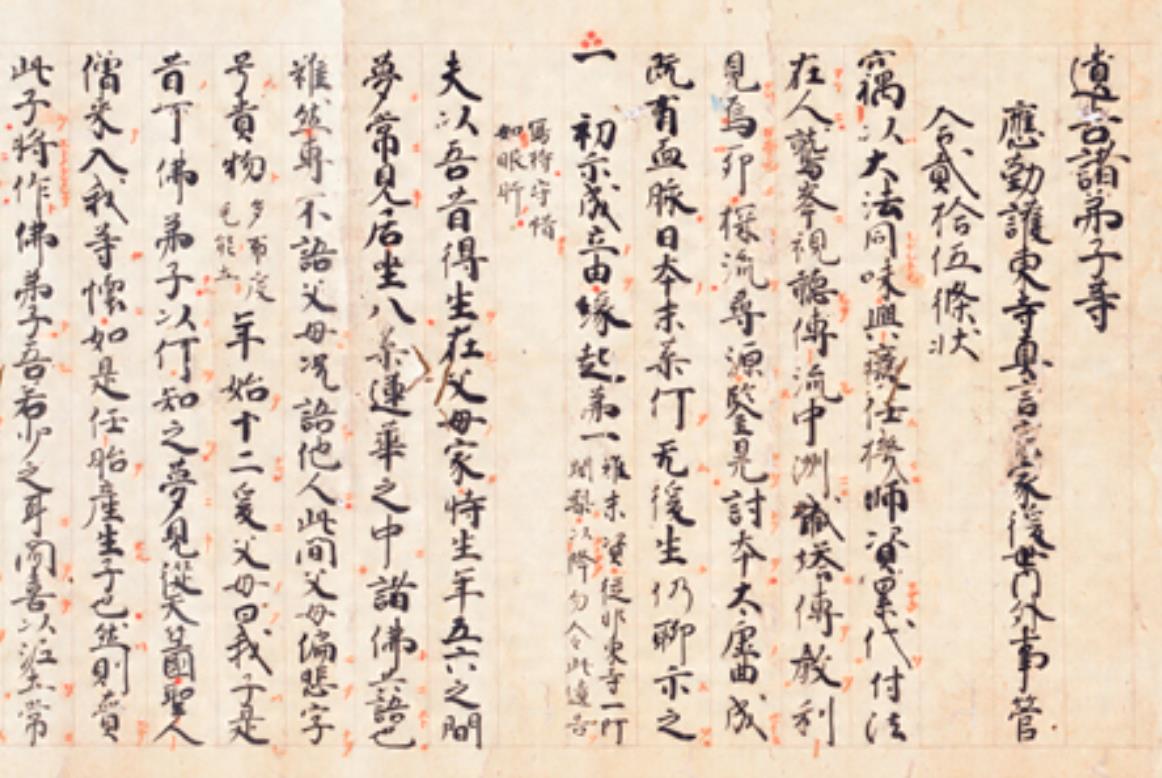 遺告諸弟子等
應勤護東寺真言宗家後世門外事管
合貳拾伍條状
竊以大法同味興癈任機師資累代付法
在人鷲峯視聽傳流中洲鐵塔傳敎利
見焉即採流尋源鑒晃討本大虚曲成
既有血脉日本末葉何无後生仍聊示之
一 初示成立由緣起第一 雖末資徒非東寺一阿
闍梨以降勿令此遺告
寫持守惜
如眼肝
夫以吾昔得生在父母家時生年五六之間
夢常見居坐八葉蓮華之中諸佛共語也
雖然專不語父母況語他人此間父母偏悲字
号貴物 多布度毛能止 年始十二爰父母曰我子是
昔可佛弟子以何知之夢見從天竺國聖人
僧來入我等懷如是任胎產生子也然則賷
此子將作佛弟子吾若少之耳聞喜以泥土常